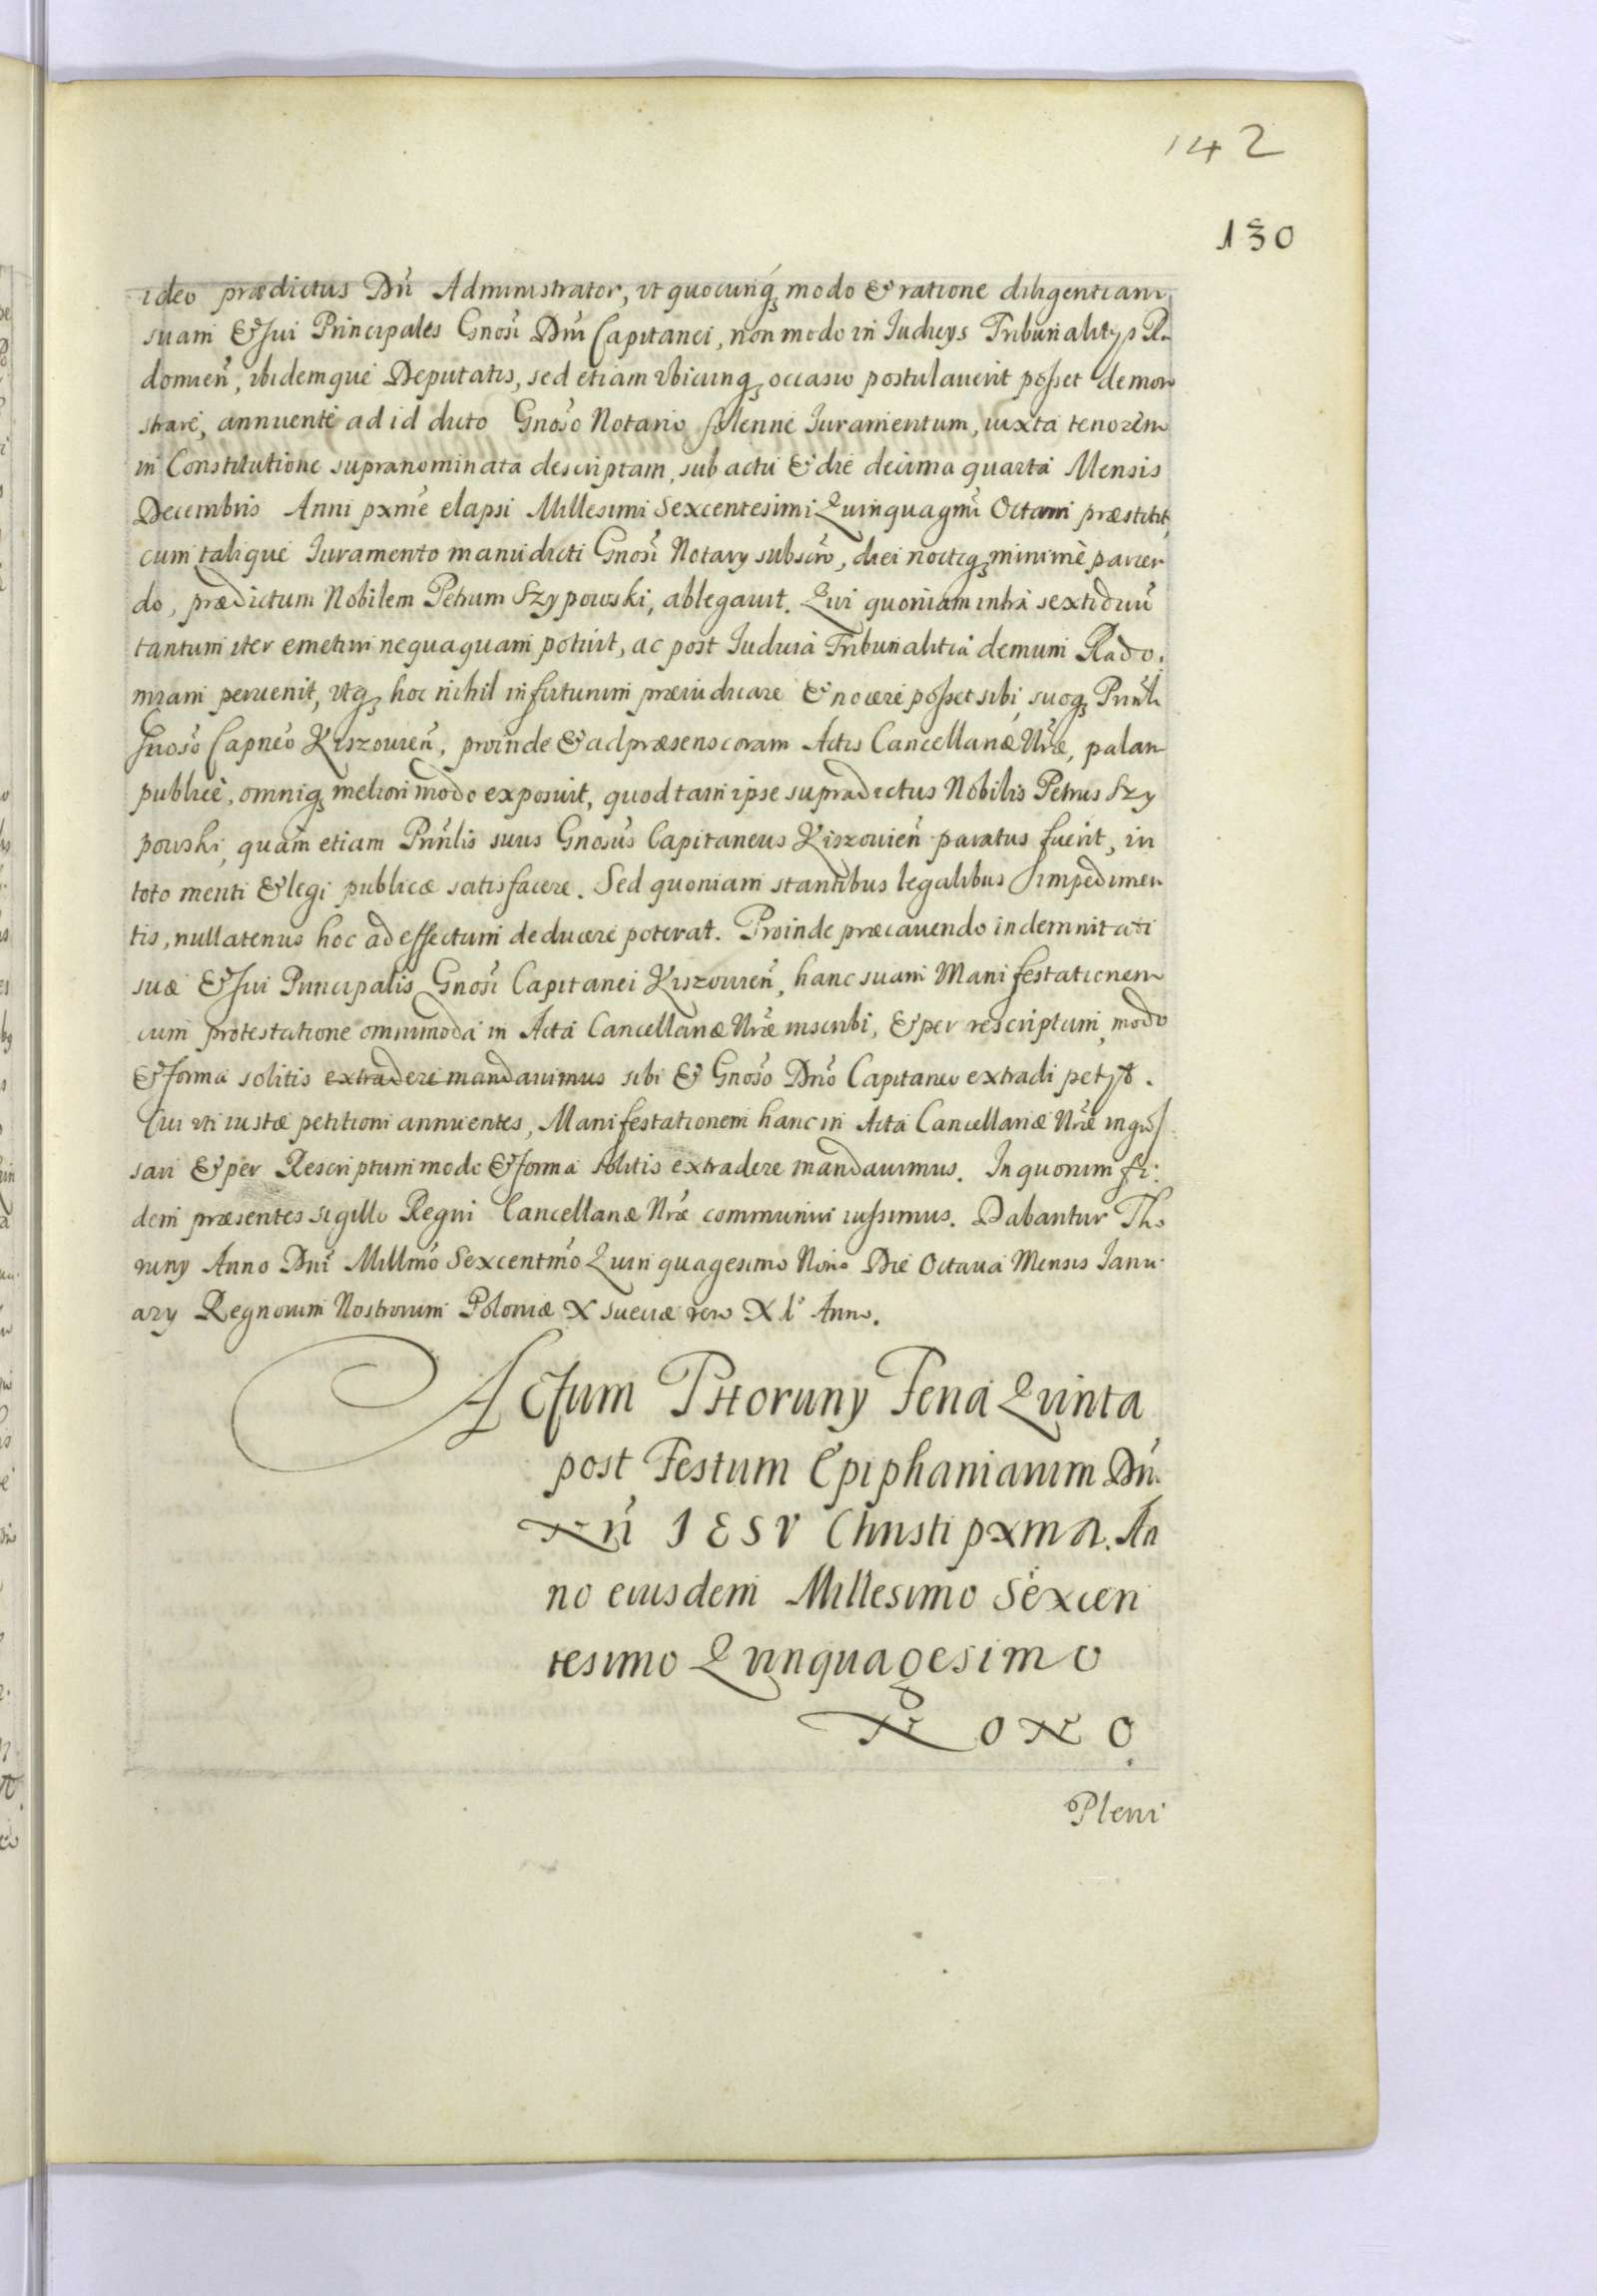 142
130
ideo prædictus Dn̄ Administrator, vt quocunq́; modo & ratione diligentiam
suam & sui Principales Gnosi Dn̄i Capitanei, non modo in Iudicys Tribunalitys Ra
domien̄, ibidemque Deputatis, sed etiam vbicunq; occasio postulauerit posset demon
strare, annuente ad id dicto Gnoso Notario solenne Iuramentum, iuxta tenorem
in Constitutione supranominata descriptam, sub actu & die decima quarta Mensis
Decembris Anni pxme elapsi Millesimi Sexcentesimi Quinquagmi Octaui præstitit,
cum talique Iuramento manu dicti Gnosi Notary subscro, diei noctiq; minimè parcen
do, prædictum Nobilem Petrum Szypowski, ablegauit. Qui quoniam intra sextiduū
tantum iter emetiri nequaquam potuit, ac post Iudicia Tribunalitia demum Rado.
miam peruenit, vtq; hoc nihil in futurum præiudicare & nocere posset sibi, suoq; Prinli
Gnoso Capneo Kiszouien̄, proinde & ad præsens coram Actis Cancellariæ Nræ, palam
publicè, omniq; meliori modo exposuit, quod tam ipse supradictus Nobilis Petrus Szy
powski, quam etiam Prinlis suus Gnosus Capitaneus Kiszouien̄ paratus fuerit, in
toto menti & legi publicæ satisfacere. Sed quoniam stantibus legalibus impedimen
tis, nullatenus hoc ad effectum deducere poterat. Proinde præcauendo indemnitati
suæ & sui Principalis Gnosi Capitanei Kiszouien̄, hanc suam Manifestationem
cum protestatione omnimoda in Acta Cancellariæ Nræ inscribi, & per rescriptum, modo
& forma solitis extradere mandauimus sibi & Gnoso Dno Capitaneo extradi petyt.
Cui vti iustæ petitioni annuentes, Manifestationem hanc in Acta Cancellariæ Nræ ingros
sari & per Rescriptum modo & forma solitis extradere mandauimus. In quorum fi:
dem præsentes sigillo Regni Cancellariæ Nræ communiri iussimus. Dabantur Tho
runy Anno Dni Millmo Sexcentmo Quinquagesimo Nono Die Octaua Mensis Ianu
ary Regnorum Nostrorum Poloniæ X Sueciæ vero XIo Anno.
Actum Thoruny Feria Quinta
post Festum Epiphaniarum Dn̄i
Nn̄ IESV Christi pxma. An
no eiusdem Millesimo Sexcen
tesimo Quinquagesimo
NONO.
Pleni